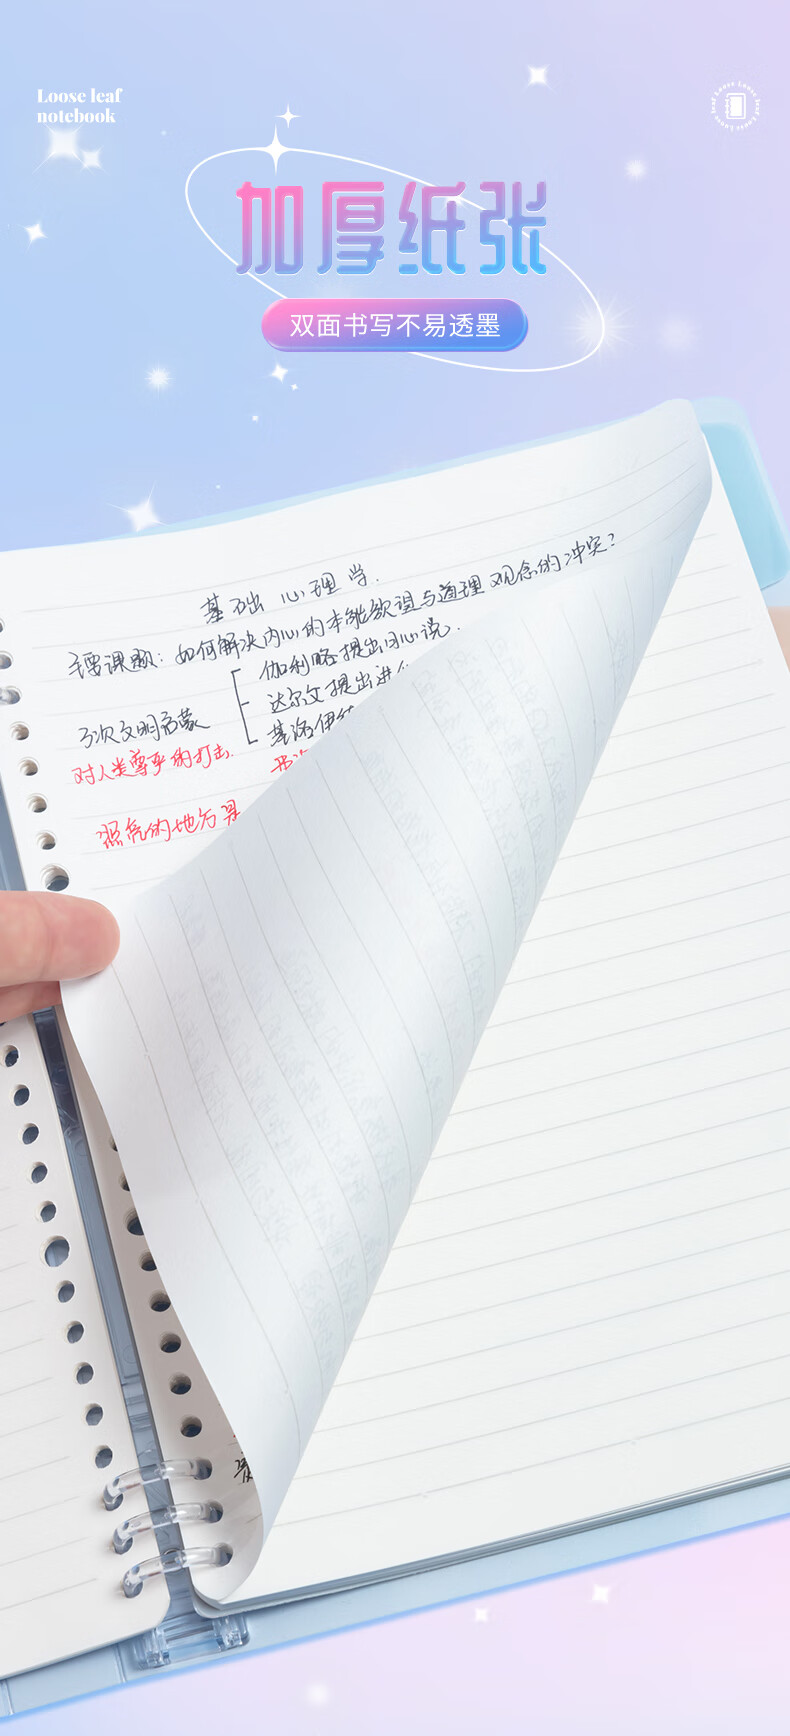 Loose leaf
notebook
Loose Loose Loose leaf
加厚纸张
双面书写不易透墨
基础心理学.
主要课题：如何解决内心的本能欲望与道理观念的冲突？
伽利略提出日心说.
3次文明启蒙
达尔文提出进化
基洛伊
对人类尊严的打击.
漂亮的地方是